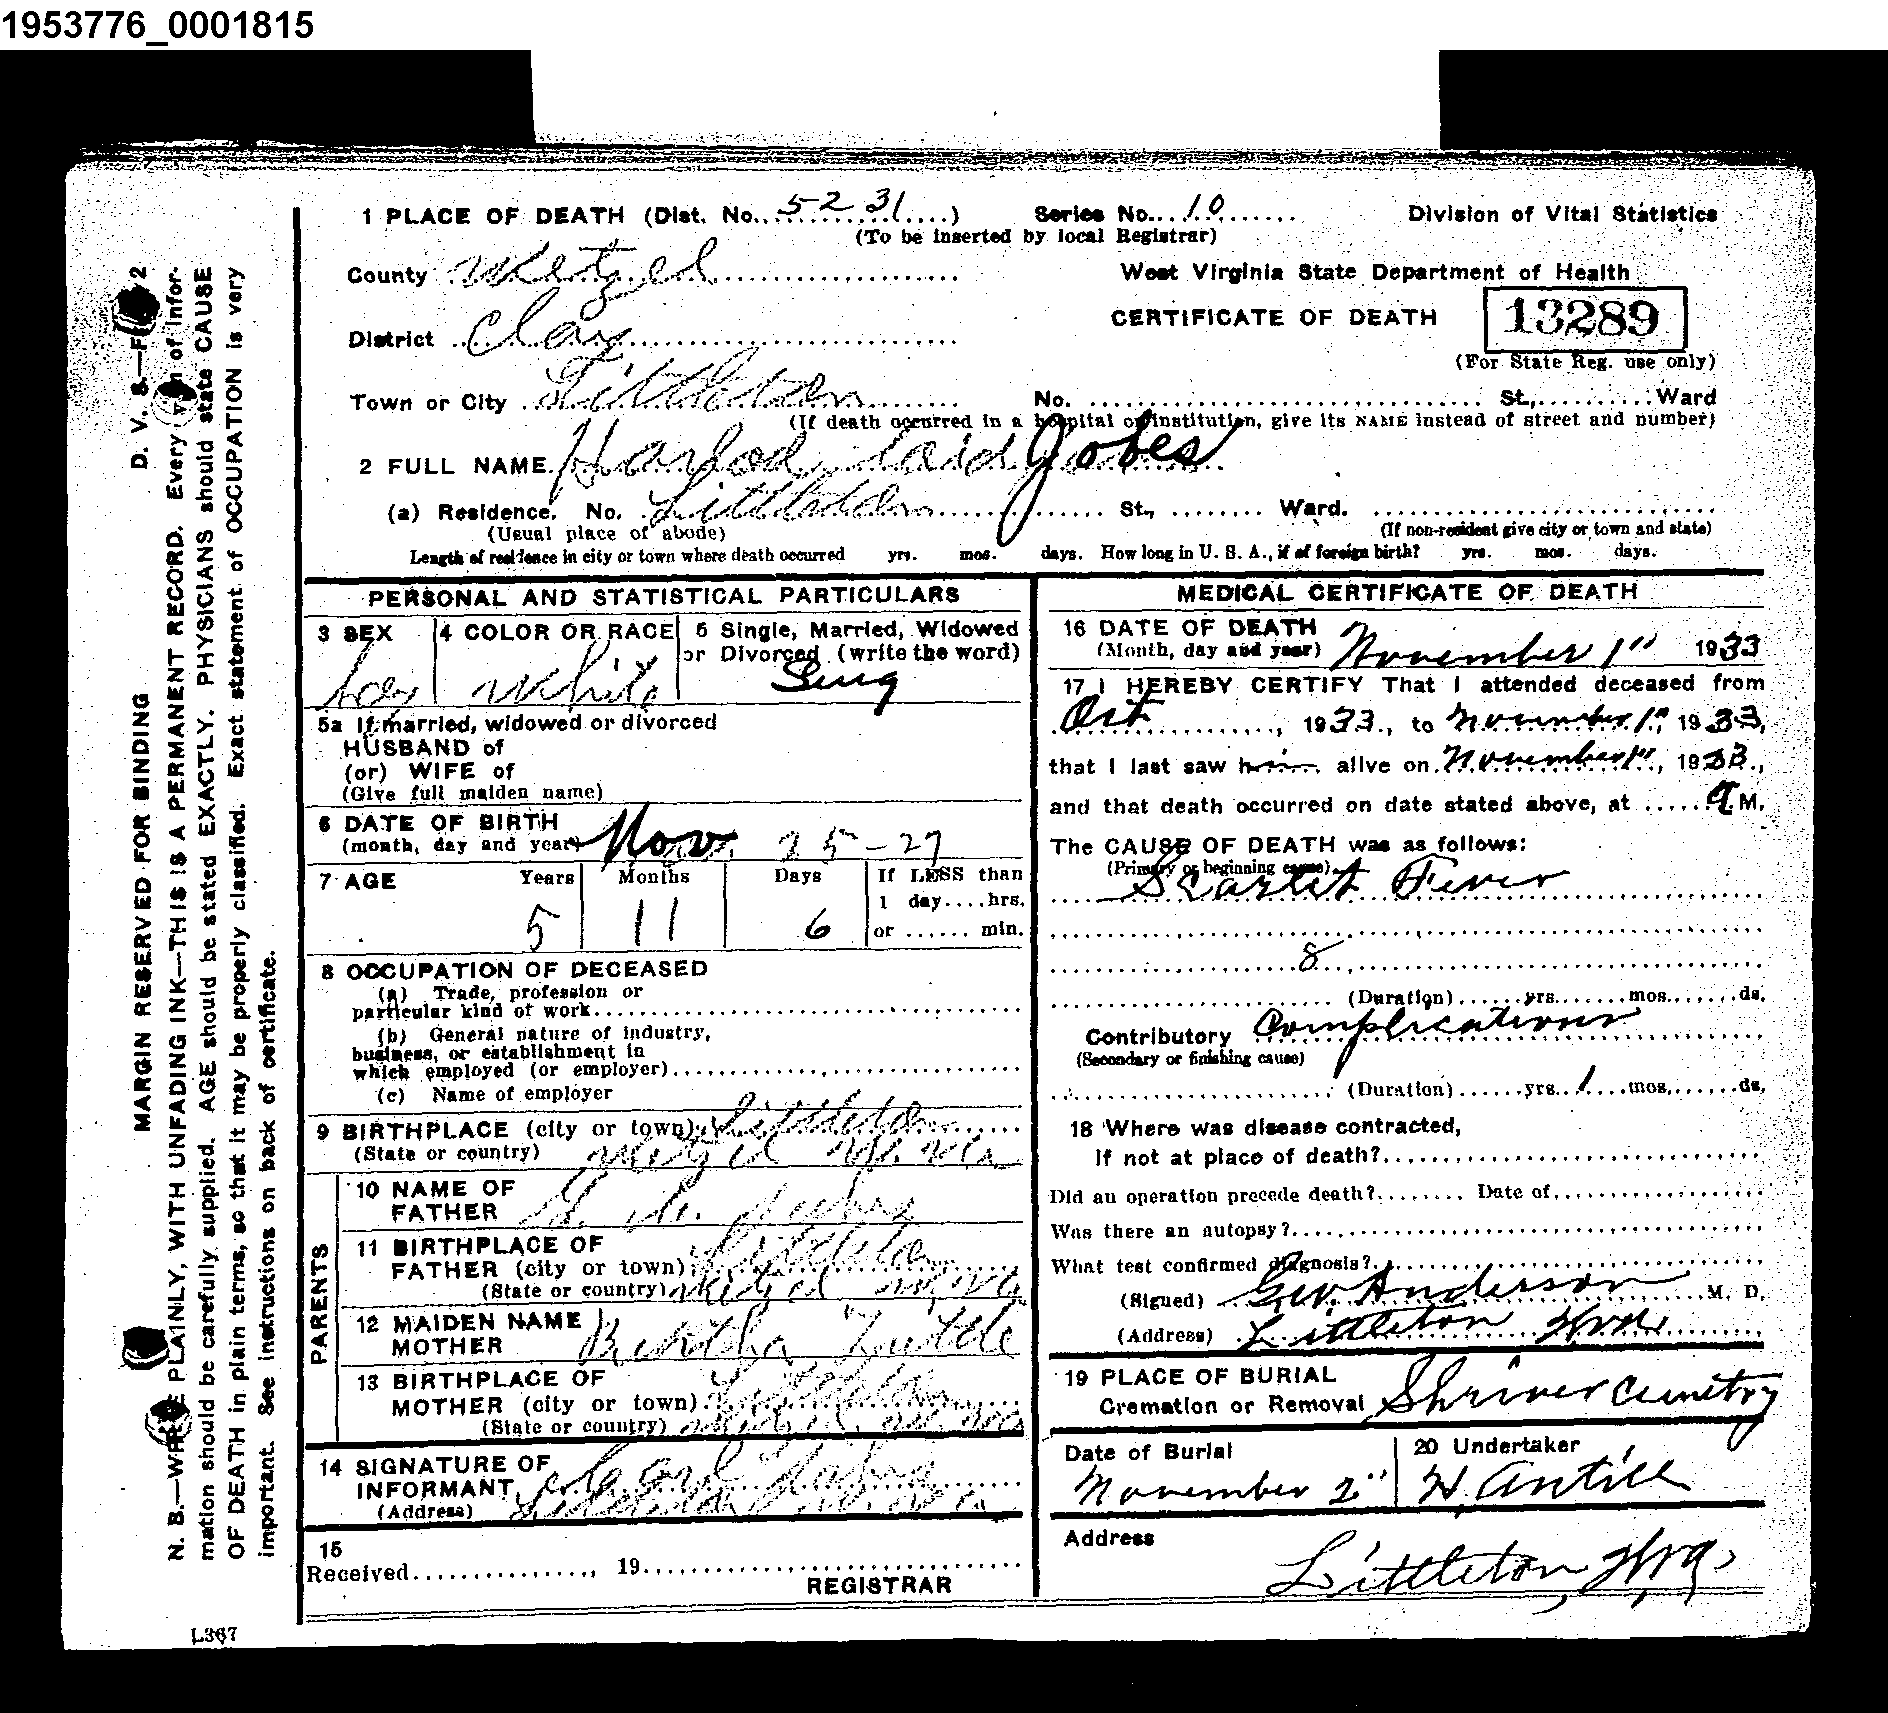 1953776_0001815
1 PLACE OF DEATH (Dist. No. 5231) Series No. 10 Division of Vital Statistics
(To be inserted by local Registrar)
County Wetzel West Virginia State Department of Health
CERTIFICATE OF DEATH 13289
District Clay
(For State Reg. use only)
Town or City Littleton No. St., Ward
(If death occurred in a hospital or institution, give its NAME instead of street and number)
2 FULL NAME Harlod Jobes
(a) Residence. No. Littleton St., Ward.
(Usual place of abode) (If non-resident give city or town and state)
Length of residence in city or town where death occurred yrs. mos. days. How long in U. S. A., if of foreign birth? yrs. mos. days.
PERSONAL AND STATISTICAL PARTICULARS
3 SEX 4 COLOR OR RACE 5 Single, Married, Widowed
or Divorced (write the word)
boy White Sing
5a If married, widowed or divorced
HUSBAND of
(or) WIFE of
(Give full maiden name)
6 DATE OF BIRTH
(month, day and year) Nov. 25-27
7 AGE Years Months Days If LESS than
1 day....hrs.
5 11 6 or ...... min.
8 OCCUPATION OF DECEASED
(a) Trade, profession or
particular kind of work
(b) General nature of industry,
business, or establishment in
which employed (or employer)
(c) Name of employer
9 BIRTHPLACE (city or town) Littleton
(State or country) Wetzel W. Va
PARENTS
10 NAME OF
FATHER
11 BIRTHPLACE OF
FATHER (city or town) Littleton
(State or country) Wetzel W. Va
12 MAIDEN NAME
MOTHER Bertha
13 BIRTHPLACE OF
MOTHER (city or town) Littleton
(State or country)
14 SIGNATURE OF
INFORMANT
(Address)
15
Received ............., 19
REGISTRAR
MEDICAL CERTIFICATE OF DEATH
16 DATE OF DEATH
(Month, day and year) November 1" 1933
17 I HEREBY CERTIFY That I attended deceased from
Oct , 1933, to November 1", 1933,
that I last saw him alive on November 1", 1933,
and that death occurred on date stated above, at M.
The CAUSE OF DEATH was as follows:
(Primary or beginning cause)
Scarlet Fever
8
(Duration) yrs. mos. ds.
Contributory Complications
(Secondary or finishing cause)
(Duration) yrs. 1 mos. ds.
18 Where was disease contracted,
if not at place of death?
Did an operation precede death? Date of
Was there an autopsy?
What test confirmed diagnosis?
(Signed) Geo. Anderson M. D.
(Address) Littleton W va
19 PLACE OF BURIAL
Cremation or Removal Shriver Cemetry
Date of Burial 20 Undertaker
November 2" H. Antill
Address
Littleton, W va,
MARGIN RESERVED FOR BINDING D. V. S.
N. B.—WRITE PLAINLY, WITH UNFADING INK—THIS IS A PERMANENT RECORD. Every item of infor-
mation should be carefully supplied. AGE should be stated EXACTLY. PHYSICIANS should state CAUSE
OF DEATH in plain terms, so that it may be properly classified. Exact statement of OCCUPATION is very
important. See instructions on back of certificate.
L367